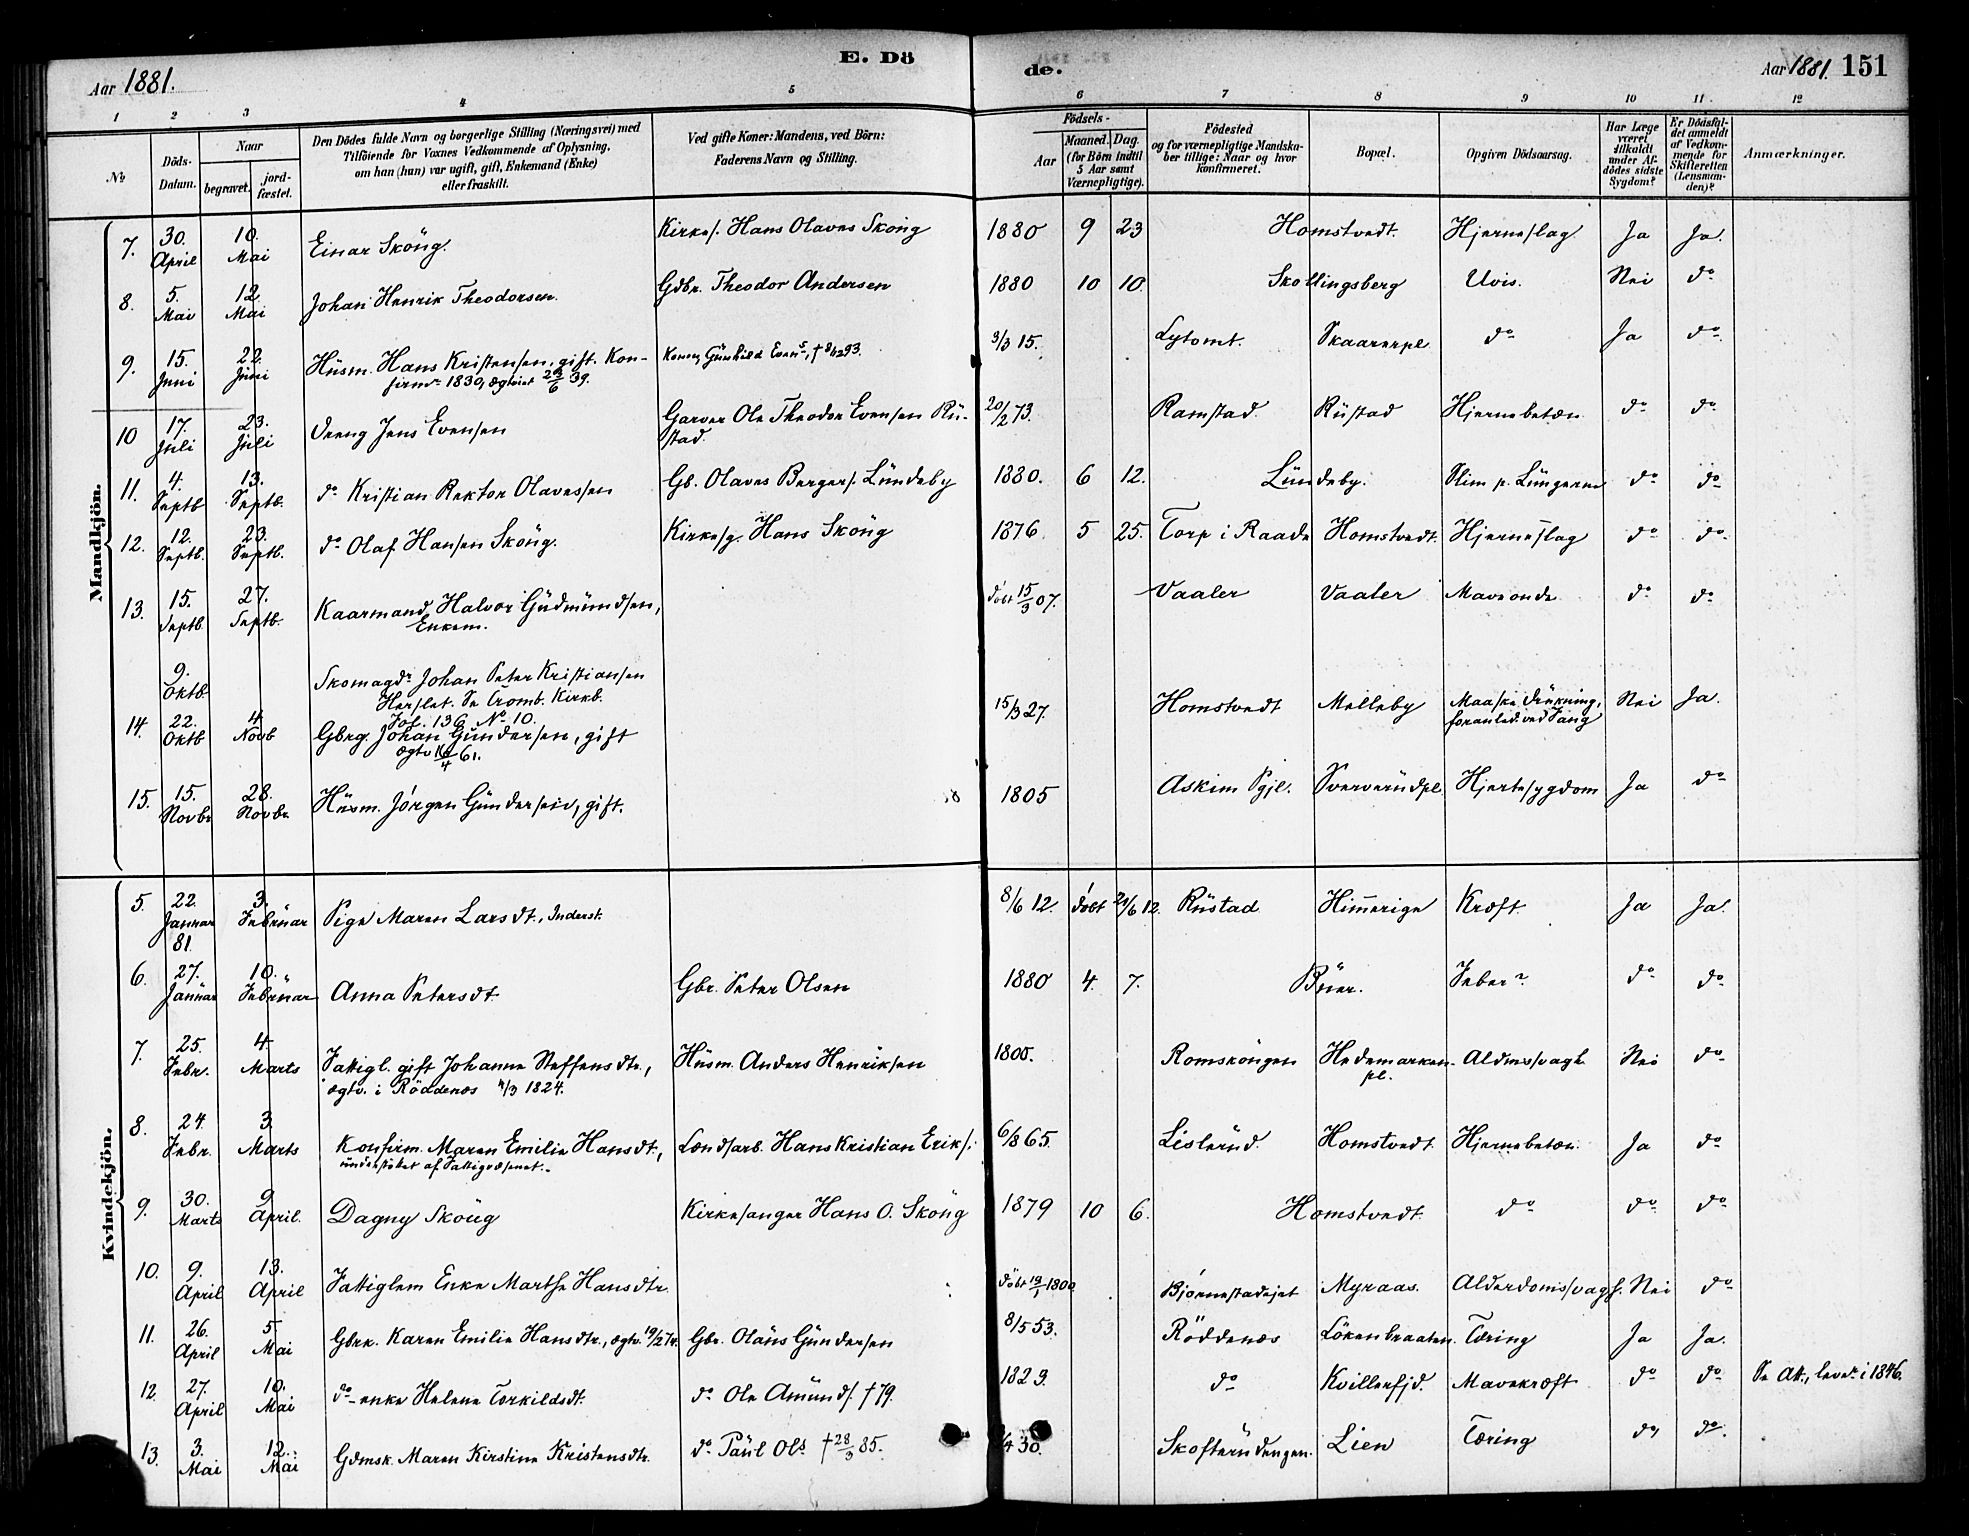 E. Dö
de.
Aar 1881.
Aar 1881. 151
1 2 3 4 5 6 7 8 9 10 11 12
No
Döds-
Datum.
Naar
begravet.
jord-
fæstet.
Den Dödes fulde Navn og borgerlige Stilling (Næringsvei) med
Tilföiende for Voxnes Vedkommende af Oplysning,
om han (hun) var ugift, gift, Enkemand (Enke)
eller fraskilt.
Ved gifte Koner: Mandens, ved Börn:
Faderens Navn og Stilling.
Födsels-
Aar
Maaned. Dag.
(for Börn indtil
5 Aar samt
Værnepligtige).
Födested
og for værnepligtige Mandska-
ber tillige: Naar og hvor
konfirmeret.
Bopæl.
Opgiven Dödsaarsag.
Har Læge
været
tilkaldt
under Af-
dödes sidste
Sygdom?
Er Dödsfal-
det anmeldt
af Vedkom-
mende for
Skifteretten
(Lensman-
den)?
Anmærkninger.
Mandkjön.
7. 30. April 10. Mai Einar Sköng. Kirkes. Hans Olaves Skong 1880 9 23 Homstvedt. Hjerneslag Ja Ja.
8. 5. Mai 12 Mai Johan Henrik Theodorsen. Gdbr. Theodor Andersen 1880 10 10. Skollingsberg Uvis. Nei do
9. 15. Juni 22. Juni Hüsm. Hans Kristensen, gift. Kon-
firmr. 1830, ægtviet 23/6 39.
Konen Günhild Evens, 3/3 15. Lytomt. Skaarerpl do Ja do
10 17. Juli 23. Juli Dreng Jens Evensen Garver Ole Theodor Evensen Rü-
stad.
20/2 73. Ramstad. Rüstad Hjernebetæn do do
11. 4. Septb 13. Septb. do Kristian Rektor Olavessen Gb. Olaves Bergers. Lündeby 1880. 6 12. Lündeby. Slim p. Lüngerne do do
12. 12. Septb. 23. Septb. do Olaf Hansen Sköng. Kirkesg. Hans Sköng 1876 5 25. Torp i Raade Homstvedt. Hjerneslag do do
13. 15. Septb. 27. Septb. Kaarmand Halvor Güdmündsen,
Enkem.
döbt 15/3 07. Vaaler Vaaler Maveonde do do
9. Oktb Skomagdr Johan Peter Kristiansen
Herslet. Se Tromb. Kirkb.
Fol. 136 No 10.
14. 22. Oktb 4. Novb Gbrg. Johan Gündersen, gift
ægtv 16/4 61.
15/3 27. Homstvedt Melleby Maaske Drükning,
foranled. ved Fang Nei Ja.
15. 15. Novbr 28. Novbr. Hüsm. Jörgen Gündersen, gift. 1805 Askim Pgjl. Sververüdpl Hjertesygdom Ja do
Kvindekjön.
5. 22. Januar 81. 3. Februar Pige Maren Larsdt., Inderst. 8/6 12. döbt 21/6 12. Rüstad Himerige Kræft. Ja Ja.
6. 27. Januar 10. Februar Anna Petersdt. Gbr. Peter Olsen 1880 4. 7. Böer. Feber? do do
7. 25. Febr. 4. Marts Fattigl. gift Johanne Steffensdtr., Hüsm. Anders Henriksen 1805. Romskongen Hedemarken-
pl. Aldersvagh. Nei do
ægtv. i Röddenæs 4/3 1824.
8. 24. Febr. 3. Marts Konfirm. Maren Emilie Hansdt., Landsarb. Hans Kristian Eriks. 6/8 65. Lislerüd. Homstvedt. Hjernebetæn. Ja do
understötet af Fattigvæsenet.
9. 30. Marts 9. April. Dagny Sköng Kirkesanger Hans O. Sköng 1879 10 6. Homstvedt. do do do
10. 9. April 13. April Fattiglem Enke Marthe Hansdtr. döbt 19/1 1800. Björnestadejet Myraas. Alderdomssvagh. Nei do
11. 26. April 5. Mai Gbrk. Karen Emilie Hansdtr., ægtv. 19/2 74. Gbr. Olaüs Gündersen 8/5 53. Röddenæs Lökenbraaten. Tæring Ja Ja.
12. 27. April 10. Mai do enke Helene Torkildsdt. do Ole Amünds. † 79. 1829. do Kvillerfjd. Mavekræft do do Se Att., lever i 1846.
13. 3. Mai 12. Mai Gdmsk. Maren Kirstine Kristensdtr. do Paül Ols. † 28/3 85. /4 30. Skofterüdengen. Lien Tæring do do